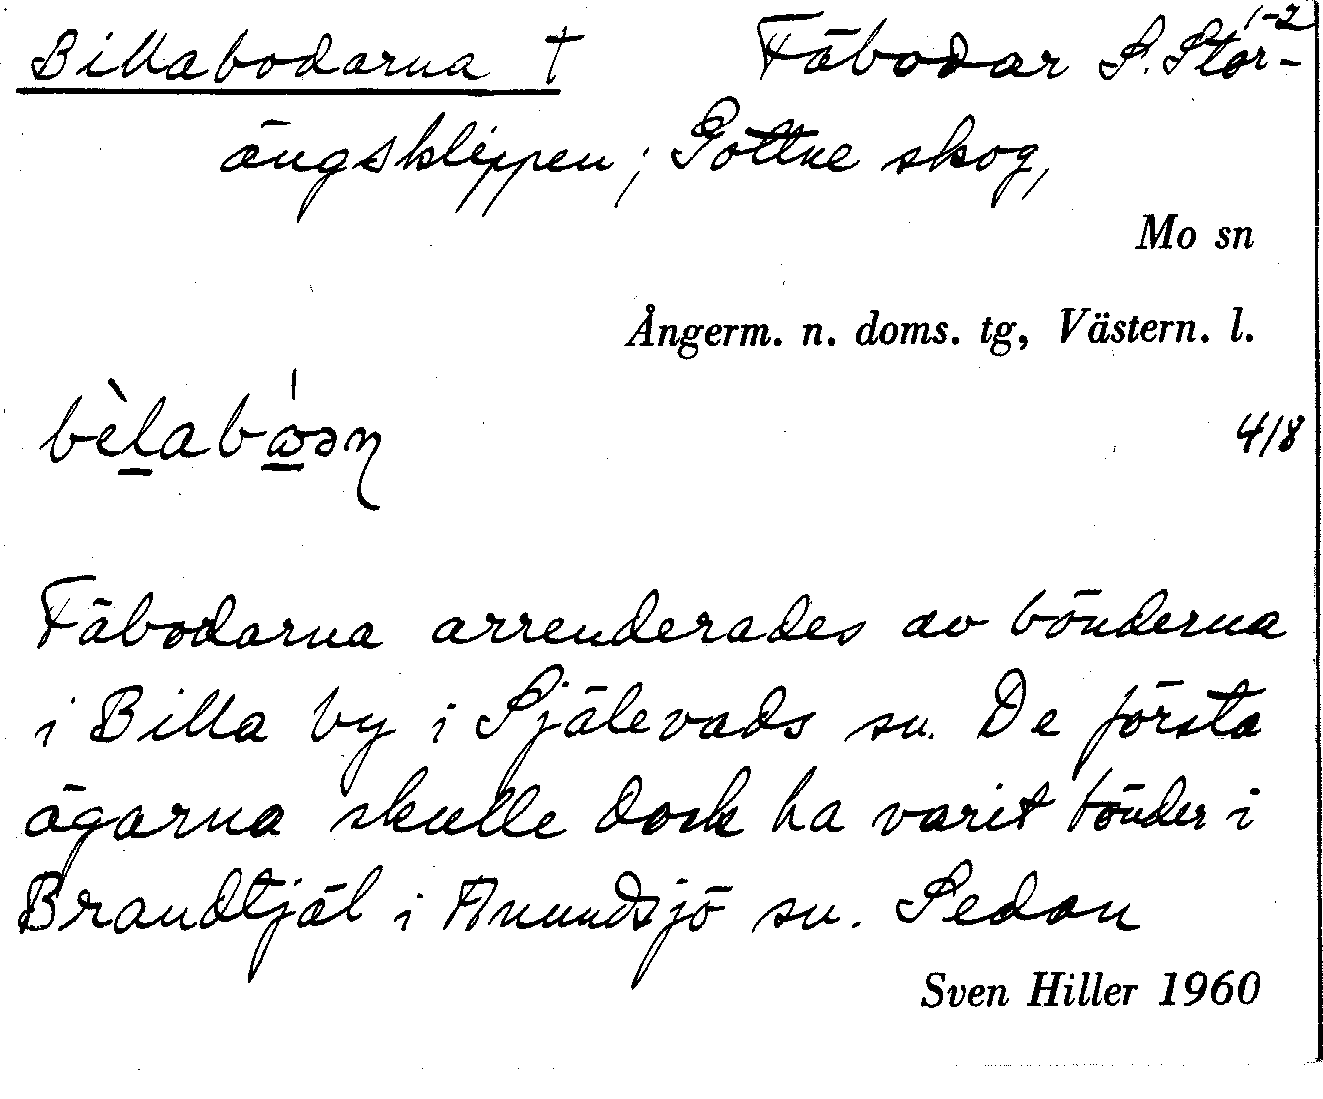 Billabodarna † Fäbodar S. Stor- 1-2
ängsklippen; Gottne skog,
Mo sn
Ångerm. n. doms. tg, Västern. l.
4/8
Fäbodarna arrenderades av bönderna
i Billa by i Själevads sn. De första
ägarna skulle dock ha varit bönder i
Brandtjäl i Anundsjö sn. Sedan
Sven Hiller 1960